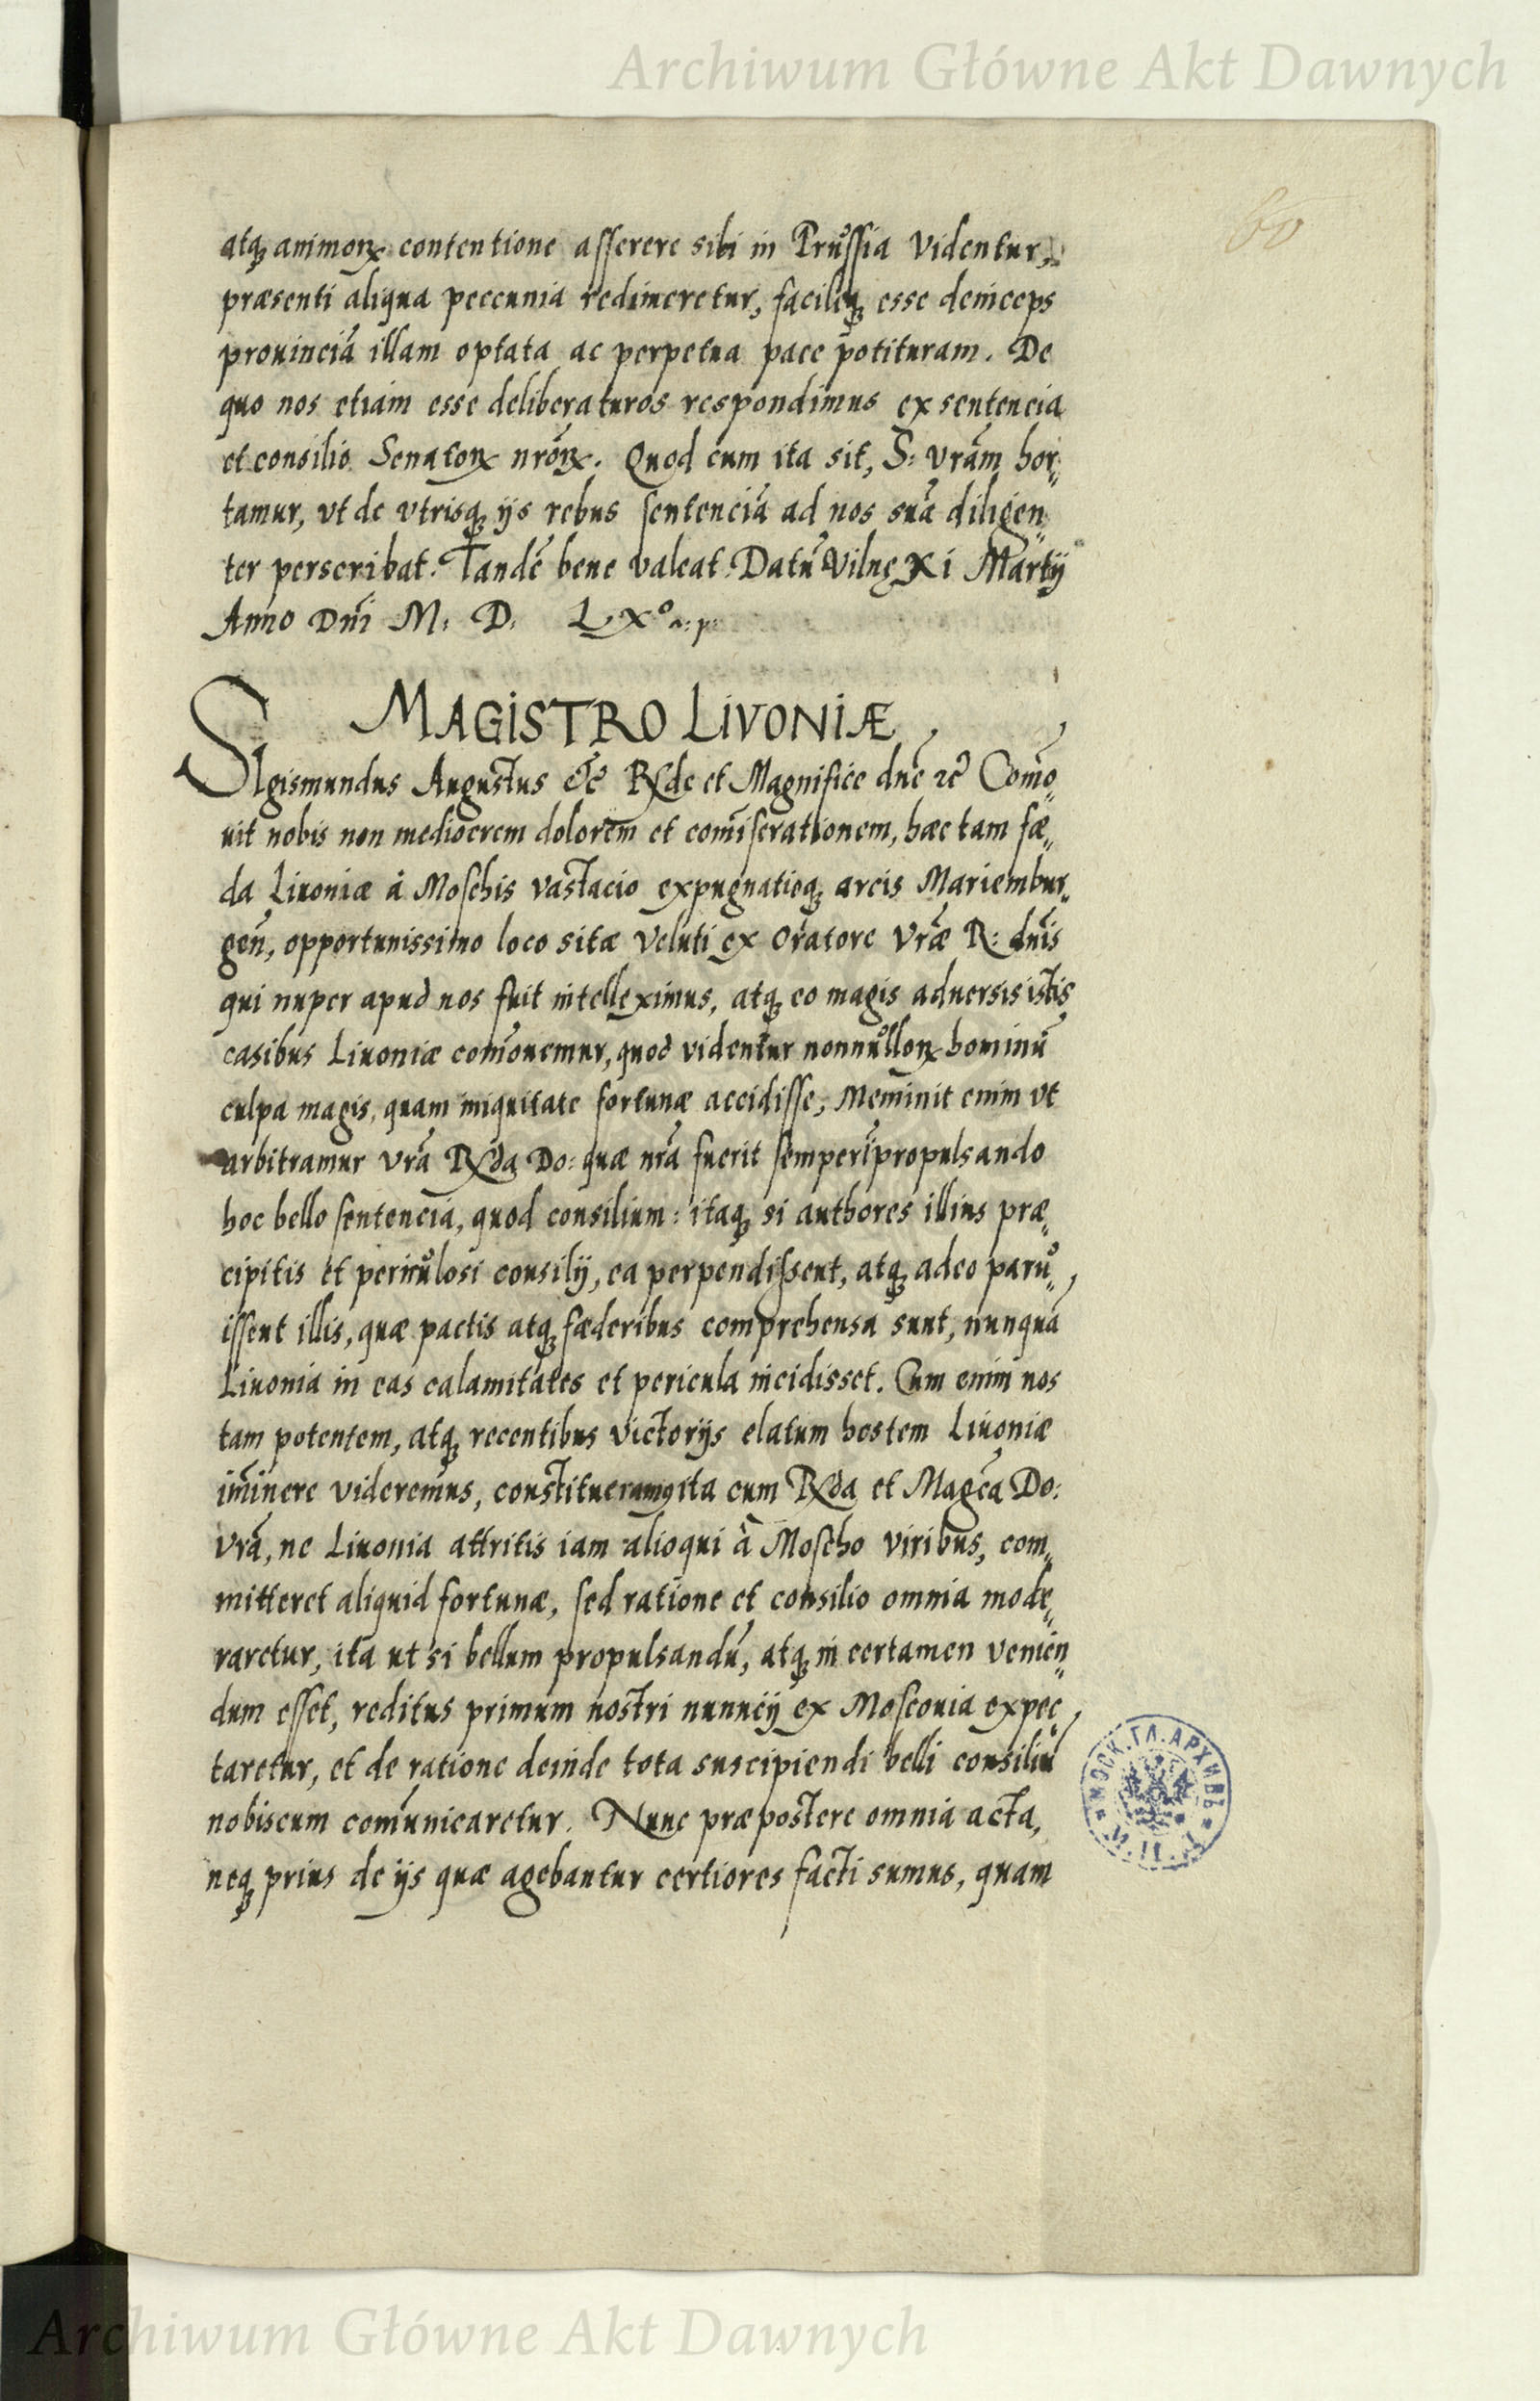 Archiwum Główne Akt Dawnych
60
atq̢ animorꝝ contentione asserere sibi in Průssia videntur,
præsenti aliqua peccunia redimeretur, facileq̢ esse deinceps
prouinciā illam optata ac perpetua pace potituram. De
quo nos etiam esse deliberaturos respondimus ex sentencia
et consilio Senatorꝝ nrōrꝝ. Quod cum ita sit, S: vrām hor„
tamur, vt de vtrisq̢ ijs rebus sentenciā ad nos suā diligen„
ter perscribat. Tandē bene valeat. Datū Vilnę Xi Martij
Anno Dni M: D: LXº
MAGISTRO LIVONIÆ
SIgismundus Augustus etc̃ Rx̃de et Magnifice dnē rc̃ Comō„
uit nobis non mediocrem dolorem et comiserationem, hæc tam fæ„
da Liuoniæ à Moschis vastacio expugnatioq̢ arcis Mariembur„
gen̄, opportunissimo loco sitæ veluti ex Oratore Vrāe R: dnīs
qui nuper apud nos fuit intelleximus, atq̢ eo magis aduersis istis
casibus Liuoniæ com̄ouemur, quod videntur nonnůllorꝝ hominū
culpa magis, quam iniquitate fortunæ accidisse, Meminit enim vt
arbitramur vrā Rx̃da Do: quæ nrā fuerit semper ī propulsando
hoc bello sentencia, quod consilium: itaq̢ si authores illius præ„
cipitis et pericůlosi consilij, ea perpendissent, atq̢ adeo parů„
issent illis, quæ pactis atq̢ fæderibus comprehensa sunt, nunquā
Liuonia in eas calamitates et pericula incidisset. Cum enim nos
tam potentem, atq̢ recentibus victorijs elatum hostem Liuoniæ
im̄inere videremus, constitueramꝰ ita cum Rx̃da et Magcā Do:
vrā, ne Liuonia attritis iam alioqui à Moscho viribus, com„
mitteret aliquid fortunæ, sed ratione et consilio omnia mode„
raretur, ita ut si bellum propulsandū, atq̢ in certamen venien„
dum esset, reditus primum nostri nunncij ex Moscouia expec„
taretur, et de ratione deinde tota suscipiendi belli consiliū
nobiscum com̄unicaretur. Nunc præpostere omnia acta,
neq̢ prius de ijs quæ agebantur certiores facti sumus, quam
МОСК. ГЛ. АРХИВЪ
М. И. Д.
Archiwum Główne Akt Dawnych